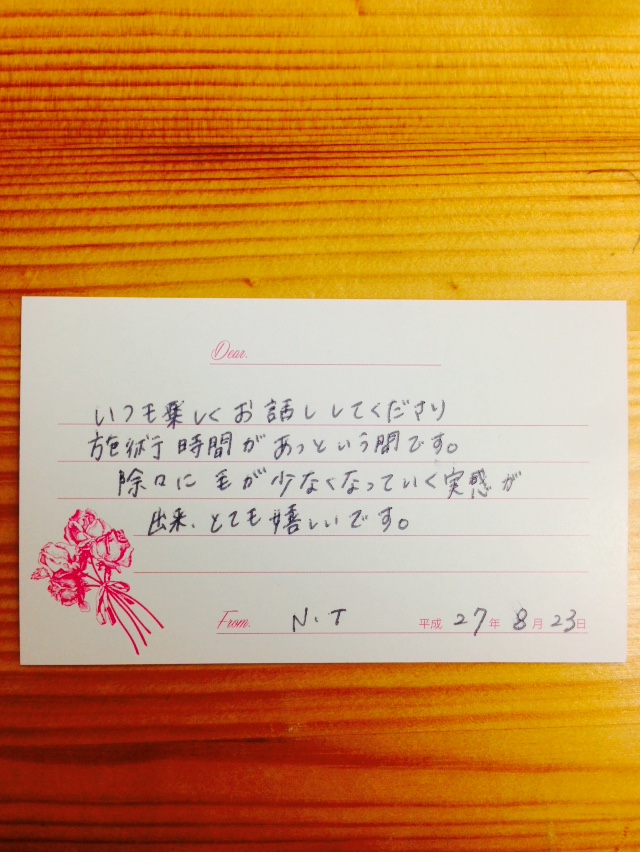 Dear.
いつも楽しくお話ししてくださり
施術時間があっという間です。
除々に毛が少なくなっていく実感が
出来、とても嬉しいです。
From. N.T 平成27年8月23日